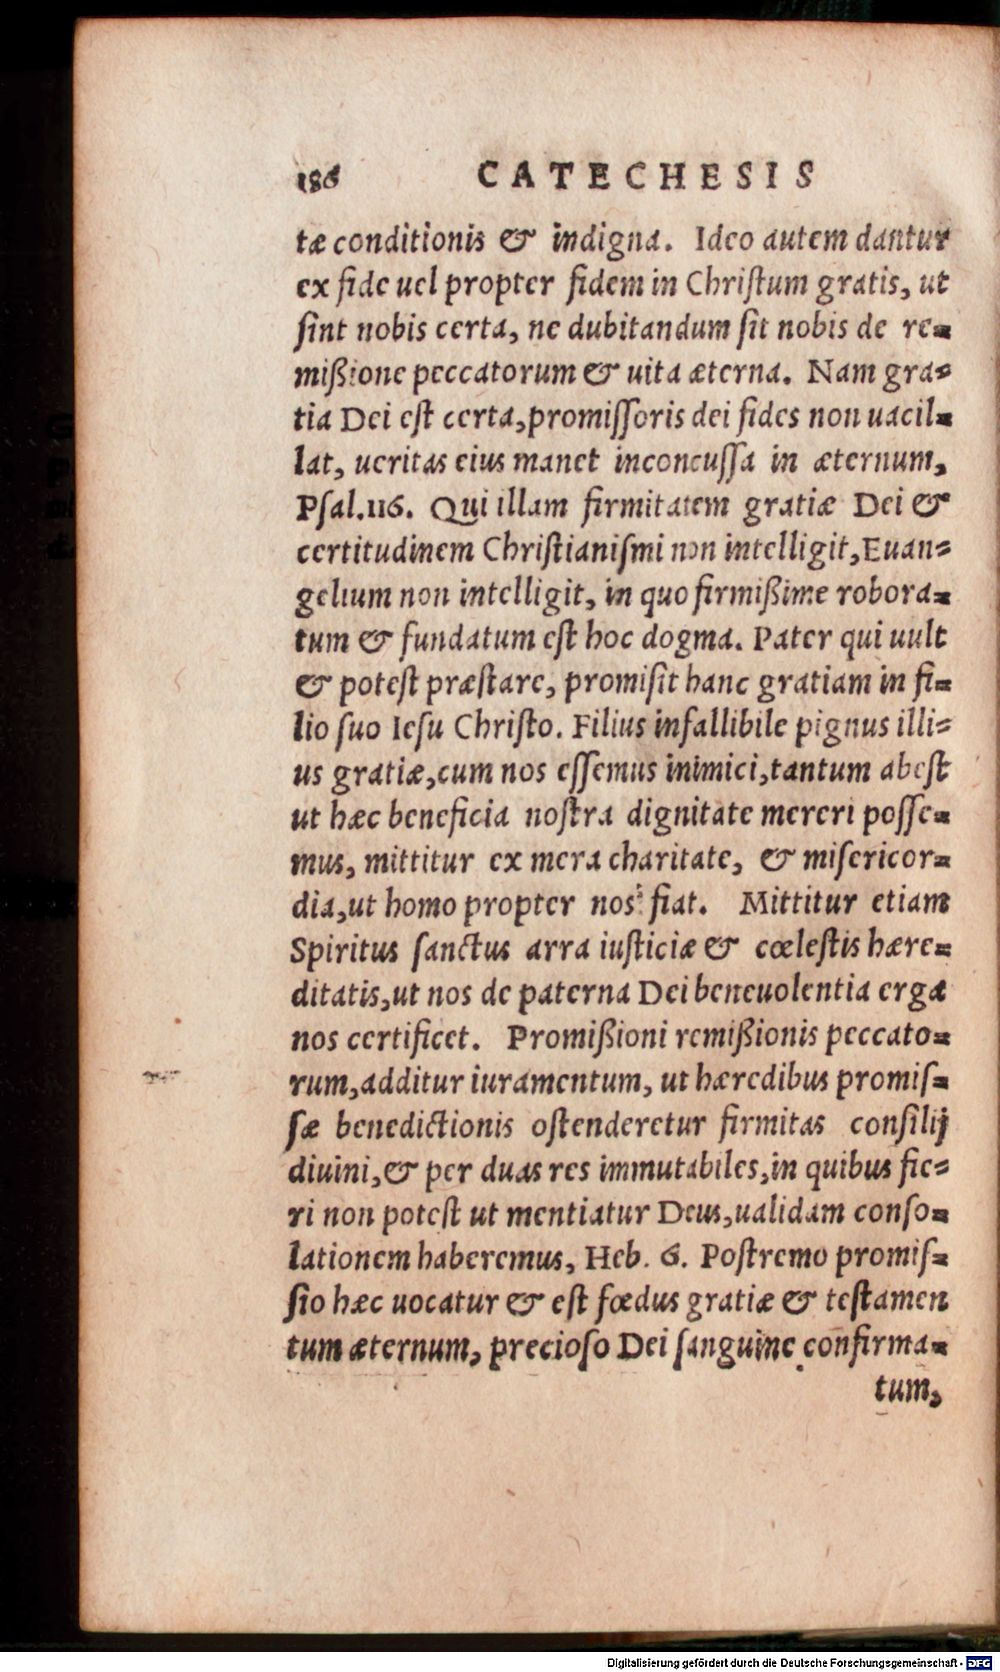 186 CATECHESIS
tæ conditionis & indigna. Ideo autem dantur
ex fide uel propter fidem in Chriſtum gratis, ut
ſint nobis certa, ne dubitandum ſit nobis de re=
mißione peccatorum & uita æterna. Nam gra=
tia Dei eſt certa, promiſſoris dei fides non uacil=
lat, ueritas eius manet inconcuſſa in æternum,
Pſal.116. Qui illam firmitatem gratiæ Dei &
certitudinem Chriſtianiſmi non intelligit, Euan=
gelium non intelligit, in quo firmißime robora=
tum & fundatum eſt hoc dogma. Pater qui uult
& poteſt præſtare, promiſit hanc gratiam in fi=
lio ſuo Ieſu Chriſto. Filius infallibile pignus illi=
us gratiæ, cum nos eſſemus inimici, tantum abeſt
ut hæc beneficia noſtra dignitate mereri poſſe=
mus, mittitur ex mera charitate, & miſericor=
dia, ut homo propter nos fiat. Mittitur etiam
Spiritus ſanctus arra iuſticiæ & cœleſtis hære=
ditatis, ut nos de paterna Dei beneuolentia erga
nos certificet. Promißioni remißionis peccato=
rum, additur iuramentum, ut hæredibus promiſ=
ſæ benedictionis oſtenderetur firmitas conſilij
diuini, & per duas res immutabiles, in quibus fie=
ri non poteſt ut mentiatur Deus, ualidam conſo=
lationem haberemus, Heb. 6. Poſtremo promiſ=
ſio hæc uocatur & eſt fœdus gratiæ & teſtamen
tum æternum, precioſo Dei ſanguine confirma=
tum,
Digitalisierung gefördert durch die Deutsche Forschungsgemeinschaft - DFG